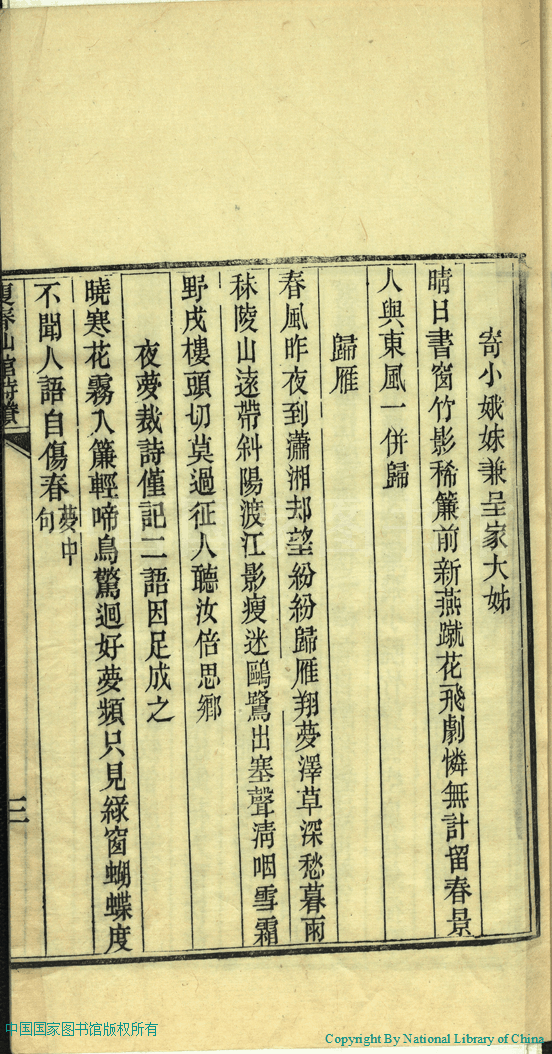 寄小娥妹兼呈家大姊
晴日書窗竹影稀簾前新燕蹴花飛劇憐無計留春景
人與東風一併歸
歸雁
春風昨夜到瀟湘却望紛紛歸雁翔夢澤草深愁暮雨
秣陵山遠帶斜陽渡江影瘦迷鷗鷺出塞聲淸咽雪霜
野戍樓頭切莫過征人聽汝倍思鄉
夜夢裁詩僅記二語因足成之
曉寒花霧入簾輕啼鳥驚迴好夢頻只見綠窗蝴蝶度
不聞人語自傷春夢中句
春山館詩
三
中国国家图书馆版权所有
Copyright By National Library of China